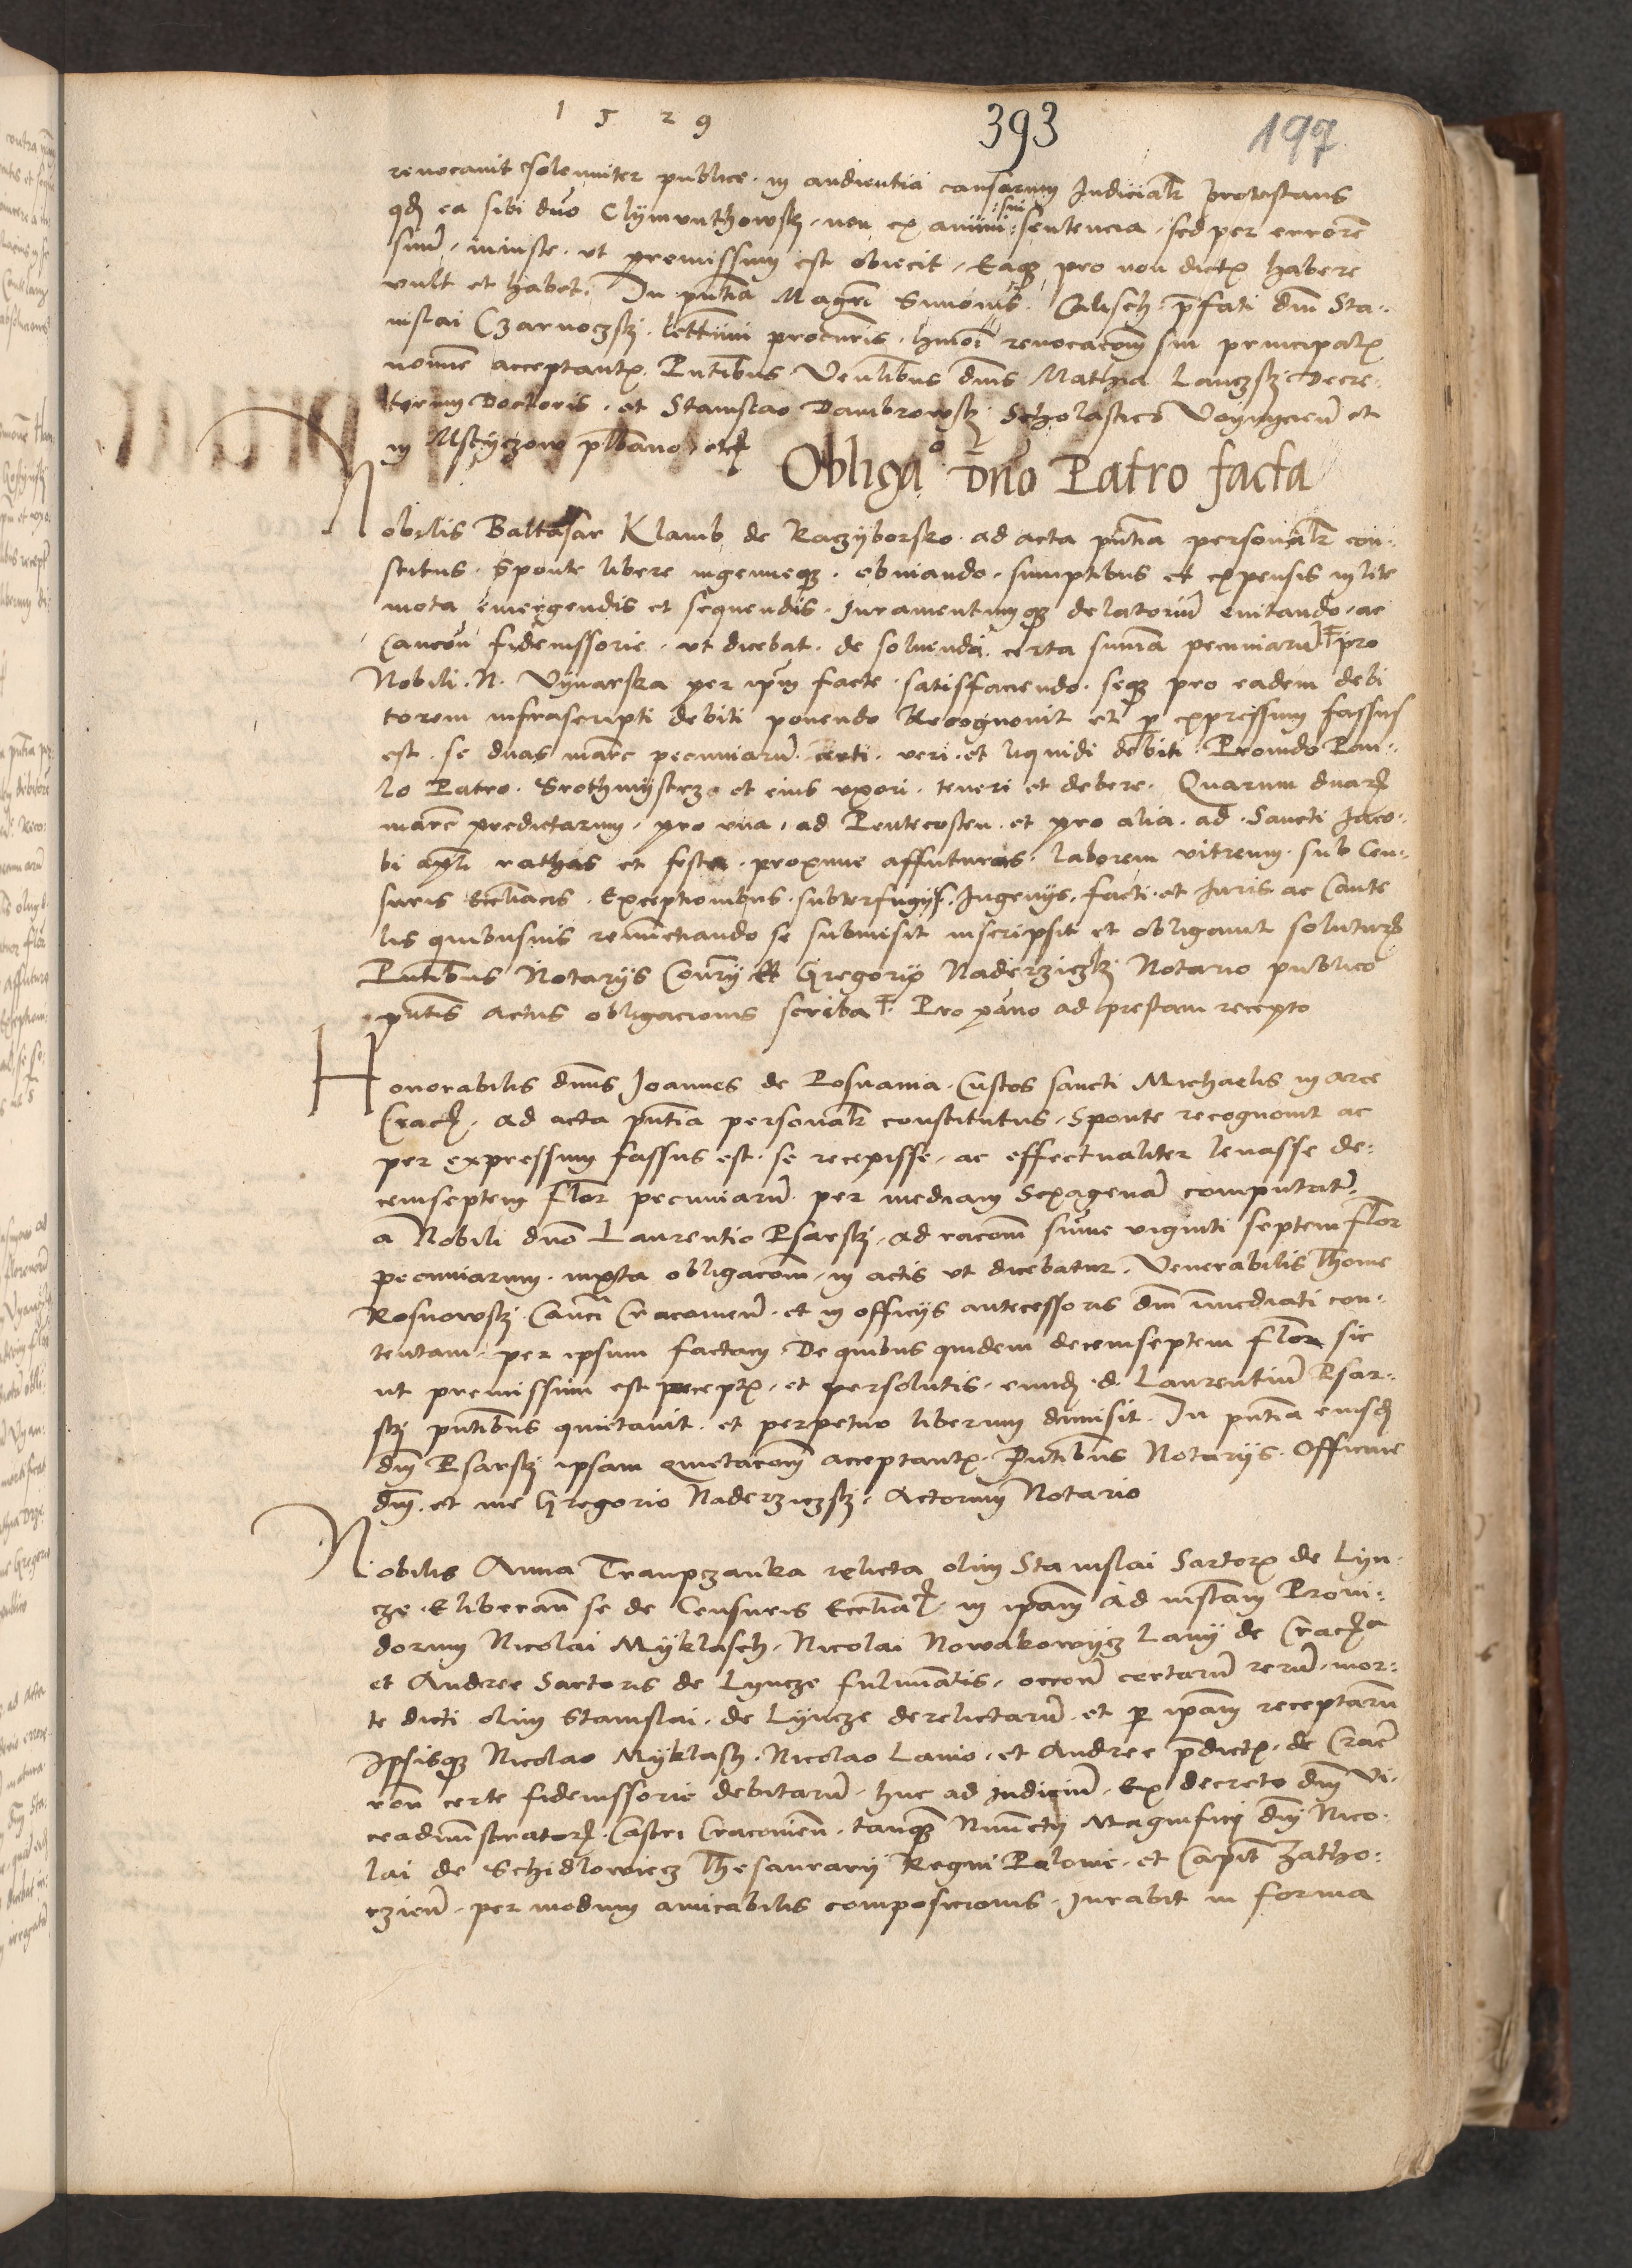 1 5 2 9
393
197
revocavit solenniter publice in audientia causarum Judicialr protestans
qd ea sibi duo Clymunthowskj non ex animi sui sentencia sed per errorē
suū iniuste ut premissum est obiecit, Eaq3 pro non dictis habere
vult et habet. In pntia Magri Simonis Calisch pfati dni Sta-
nislai Czarnoczskj lettimi procuris hmoi revocacōm sui principalis
nomīe acceptantis Pntibus Venlibus dnis Mathia Lanczskj Decre-
torum Doctoris et Stanislao Dambrowskj Scholastico Voyniciēn et
in Msczyczow plbano etc
Obliga° Dno Patro facta
Nobilis Baltasar Klamb de Raczyborsko ad acta pntia personalr con-
stitus Sponte libere ingenueq3 obuiando sumptibus et expensis in lite
mota emergendis et sequendis Juramentumq3 delatoriū euitando ac
Caucōn fideiussorie ut dicebat de soluenda certa suma pecuniarū pro
Nobili N. Vynarska per ipm facte satisfaciendo seq3 pro eadem debi
torem infrascripti debiti ponendo Recognouit et p expressum fassus
est se duas marc pecuniarū certi veri et liquidi debiti Prouido Pau-
lo Patro Srothmystrzo et eius uxori teneri et debere Quarum duar
marc predictarum pro una ad Pentecosten et pro alia ad Sancti Jaco-
bi apli rathas et festa proxime affuturas laborem vitreum sub Cen-
suris Ecclīacis Exceptionibus subterfugijs Ingenijs facti et Juris ac Caute
lis quibusuis renunciando se submisit inscripsit et obligauit soluturus
Pntibus Notarijs Coñrij et Gregorio Naderziczskj Notario publico
pntis actus obligacionis scriba Pro pāno ad prestam recepto
Honorabilis dnus Joannes de Posnania Custos sancti Michaelis in arce
Crac ad acta pntia personalr constitutus Sponte recognouit ac
per expressum fassus est se recepisse ac effectualiter leuasse de-
cemseptem flor pecuniarū per mediam Sexagenā computatū
a Nobili dno Laurentio Psarskj ad racōm sume viginti septem flor
pecuniarum iuxta obligacōm in actis ut dicebatur Venerabilis Thome
Rosnowskj Canci Cracouieñ et in officijs antecessoris dni imediati con-
tentam per ipsum factam De quibus quidem decemseptem flor sic
ut premissum est receptis et persolutis eund d. Laurentiū Psar-
skj pntibus quietauit et perpetuo liberum dimisit In pntia eiusd
dni Psarskj ipsam quietacōm acceptantis Pntibus Notarijs Officine
dni et me Gregorio Naderziczskj Actorum Notario
Nobilis Anna Tranpczanka relicta olim Stanislai Sartoris de Lyn-
cze Eliberañ se de Censuris Ecclīa in ipam ad instam Proui-
dorum Nicolai Myklasch Nicolai Nowakowycz Lanij de Crac
et Andree Sartoris de Lyncze fulminatis occōne certarū rerū mor-
te dicti olim Stanislai de Lyncze derelictarū et p ipam receptarū
Ipsisq3 Nicolao Myklasch Nicolao Lanio et Andree pdictis de Crac
rōne certe fideiussorie debitarū huc ad iudiciū Ex decreto dni Vi-
ceadministrator Castri Cracouieñ tanq3 Nunctij Magnifici dni Nico-
lai de Schidlowiecz Thesaurarij Regni Polonie et Capit Zatho-
rzieñ per modum amicabilis composicionis Jurabit in forma